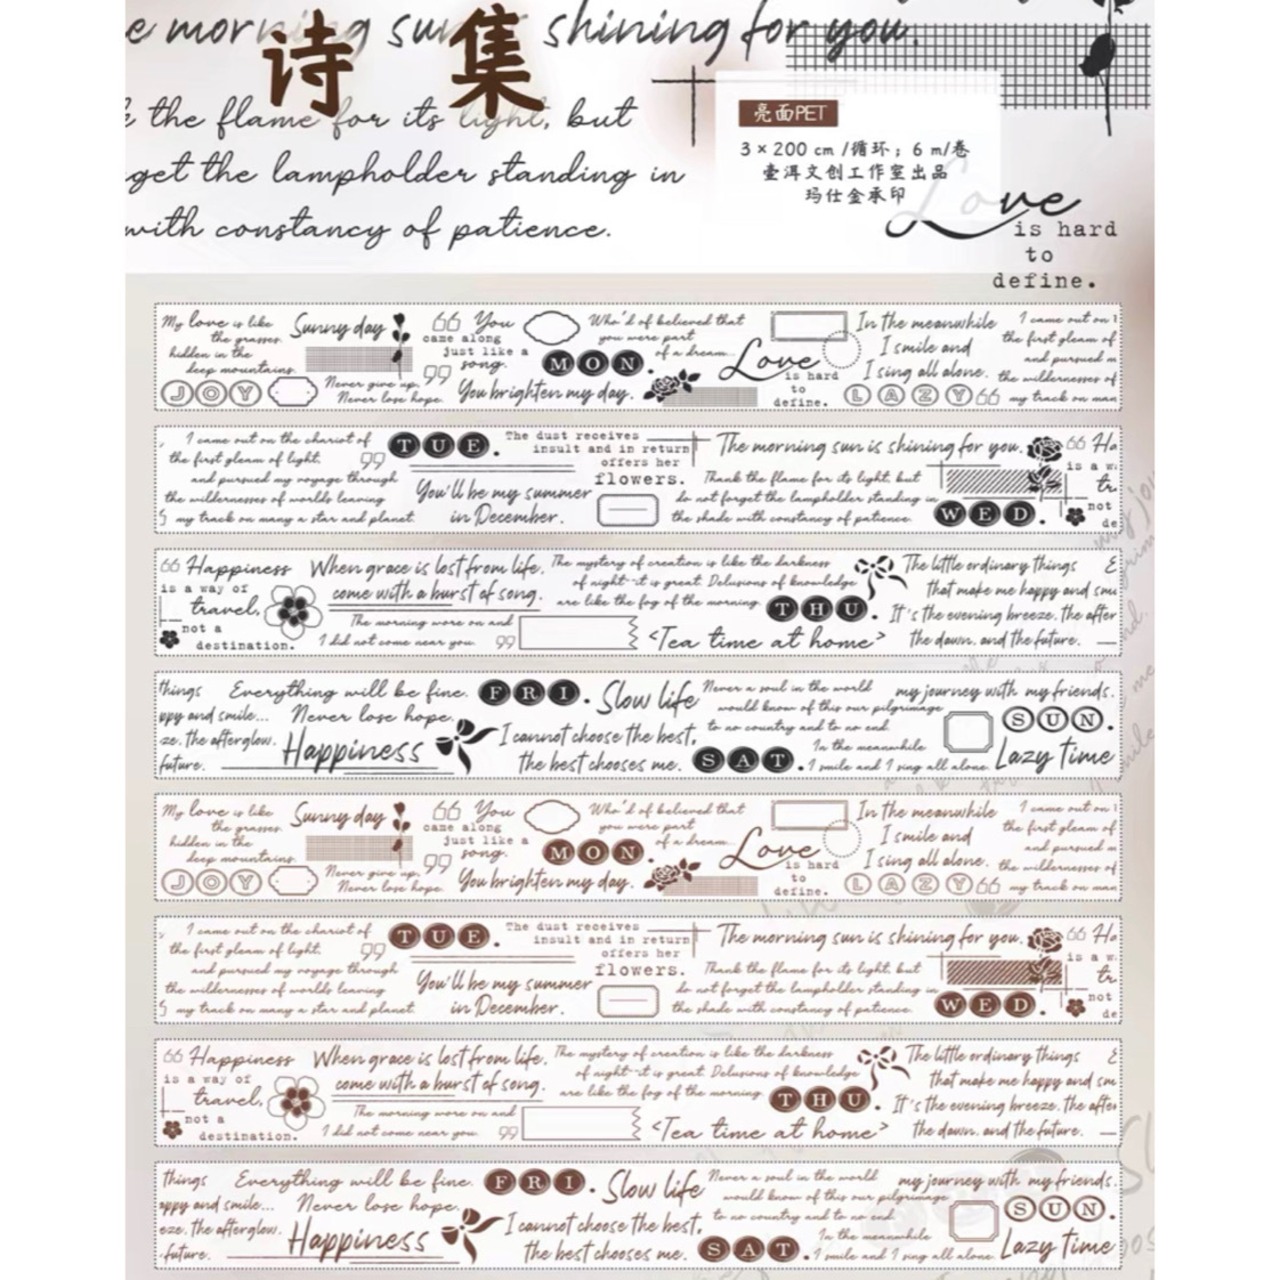 e morning sun is shining for you.
诗集
the flame for its light, but
get the lampholder standing in
with constancy of patience.
亮面PET
3×200 cm /循环；6 m/卷
壶洱文创工作室出品
玛仕金承印
Love
is hard
to
define.
My love is like
the grasses
hidden in the
deep mountains.
Sunny day
JOY
Never give up,
Never lose hope.
You
came along
just like a
song.
You brighten my day.
MON.
Who'd of believed that
you were part
of a dream...
Love
is hard
to
define.
In the meanwhile
I smile and
I sing all alone.
LAZY
I came out on
the first gleam of
and pursued m
the wildernesses of
my track on man
I came out on the chariot of
the first gleam of light,
and pursued my voyage through
the wildernesses of worlds leaving
my track on many a star and planet.
TUE.
You'll be my summer
in December.
The dust receives
insult and in return
offers her
flowers.
The morning sun is shining for you.
Thank the flame for its light, but
do not forget the lampholder standing in
the shade with constancy of patience.
WED.
Ha
is a w
tr
not
de
Happiness
is a way of
travel,
not a
destination.
When grace is lost from life,
come with a burst of song.
The morning wore on and
I did not come near you.
The mystery of creation is like the darkness
of night--it is great. Delusions of knowledge
are like the fog of the morning.
THU.
<Tea time at home>
The little ordinary things
that make me happy and smi
It's the evening breeze, the after
the dawn, and the future.
E
things
ppy and smile...
ze, the afterglow,
future.
Everything will be fine.
Never lose hope.
Happiness
FRI.
Slow life
I cannot choose the best,
the best chooses me.
SAT.
Never a soul in the world
would know of this our pilgrimage
to no country and to no end.
In the meanwhile
I smile and I sing all alone.
my journey with my friends.
SUN.
Lazy time
My love is like
the grasses
hidden in the
deep mountains.
Sunny day
JOY
Never give up,
Never lose hope.
You
came along
just like a
song.
You brighten my day.
MON.
Who'd of believed that
you were part
of a dream...
Love
is hard
to
define.
In the meanwhile
I smile and
I sing all alone.
LAZY
I came out on
the first gleam of
and pursued m
the wildernesses of
my track on man
I came out on the chariot of
the first gleam of light,
and pursued my voyage through
the wildernesses of worlds leaving
my track on many a star and planet.
TUE.
You'll be my summer
in December.
The dust receives
insult and in return
offers her
flowers.
The morning sun is shining for you.
Thank the flame for its light, but
do not forget the lampholder standing in
the shade with constancy of patience.
WED.
Ha
is a w
tr
not
de
Happiness
is a way of
travel,
not a
destination.
When grace is lost from life,
come with a burst of song.
The morning wore on and
I did not come near you.
The mystery of creation is like the darkness
of night--it is great. Delusions of knowledge
are like the fog of the morning.
THU.
<Tea time at home>
The little ordinary things
that make me happy and sm
It's the evening breeze, the after
the dawn, and the future.
E
things
ppy and smile...
eze, the afterglow,
future.
Everything will be fine.
Never lose hope.
Happiness
FRI.
Slow life
I cannot choose the best,
the best chooses me.
SAT.
Never a soul in the world
would know of this our pilgrimage
to no country and to no end
In the meanwhile
I smile and I sing all alone.
my journey with my friends.
SUN.
Lazy time